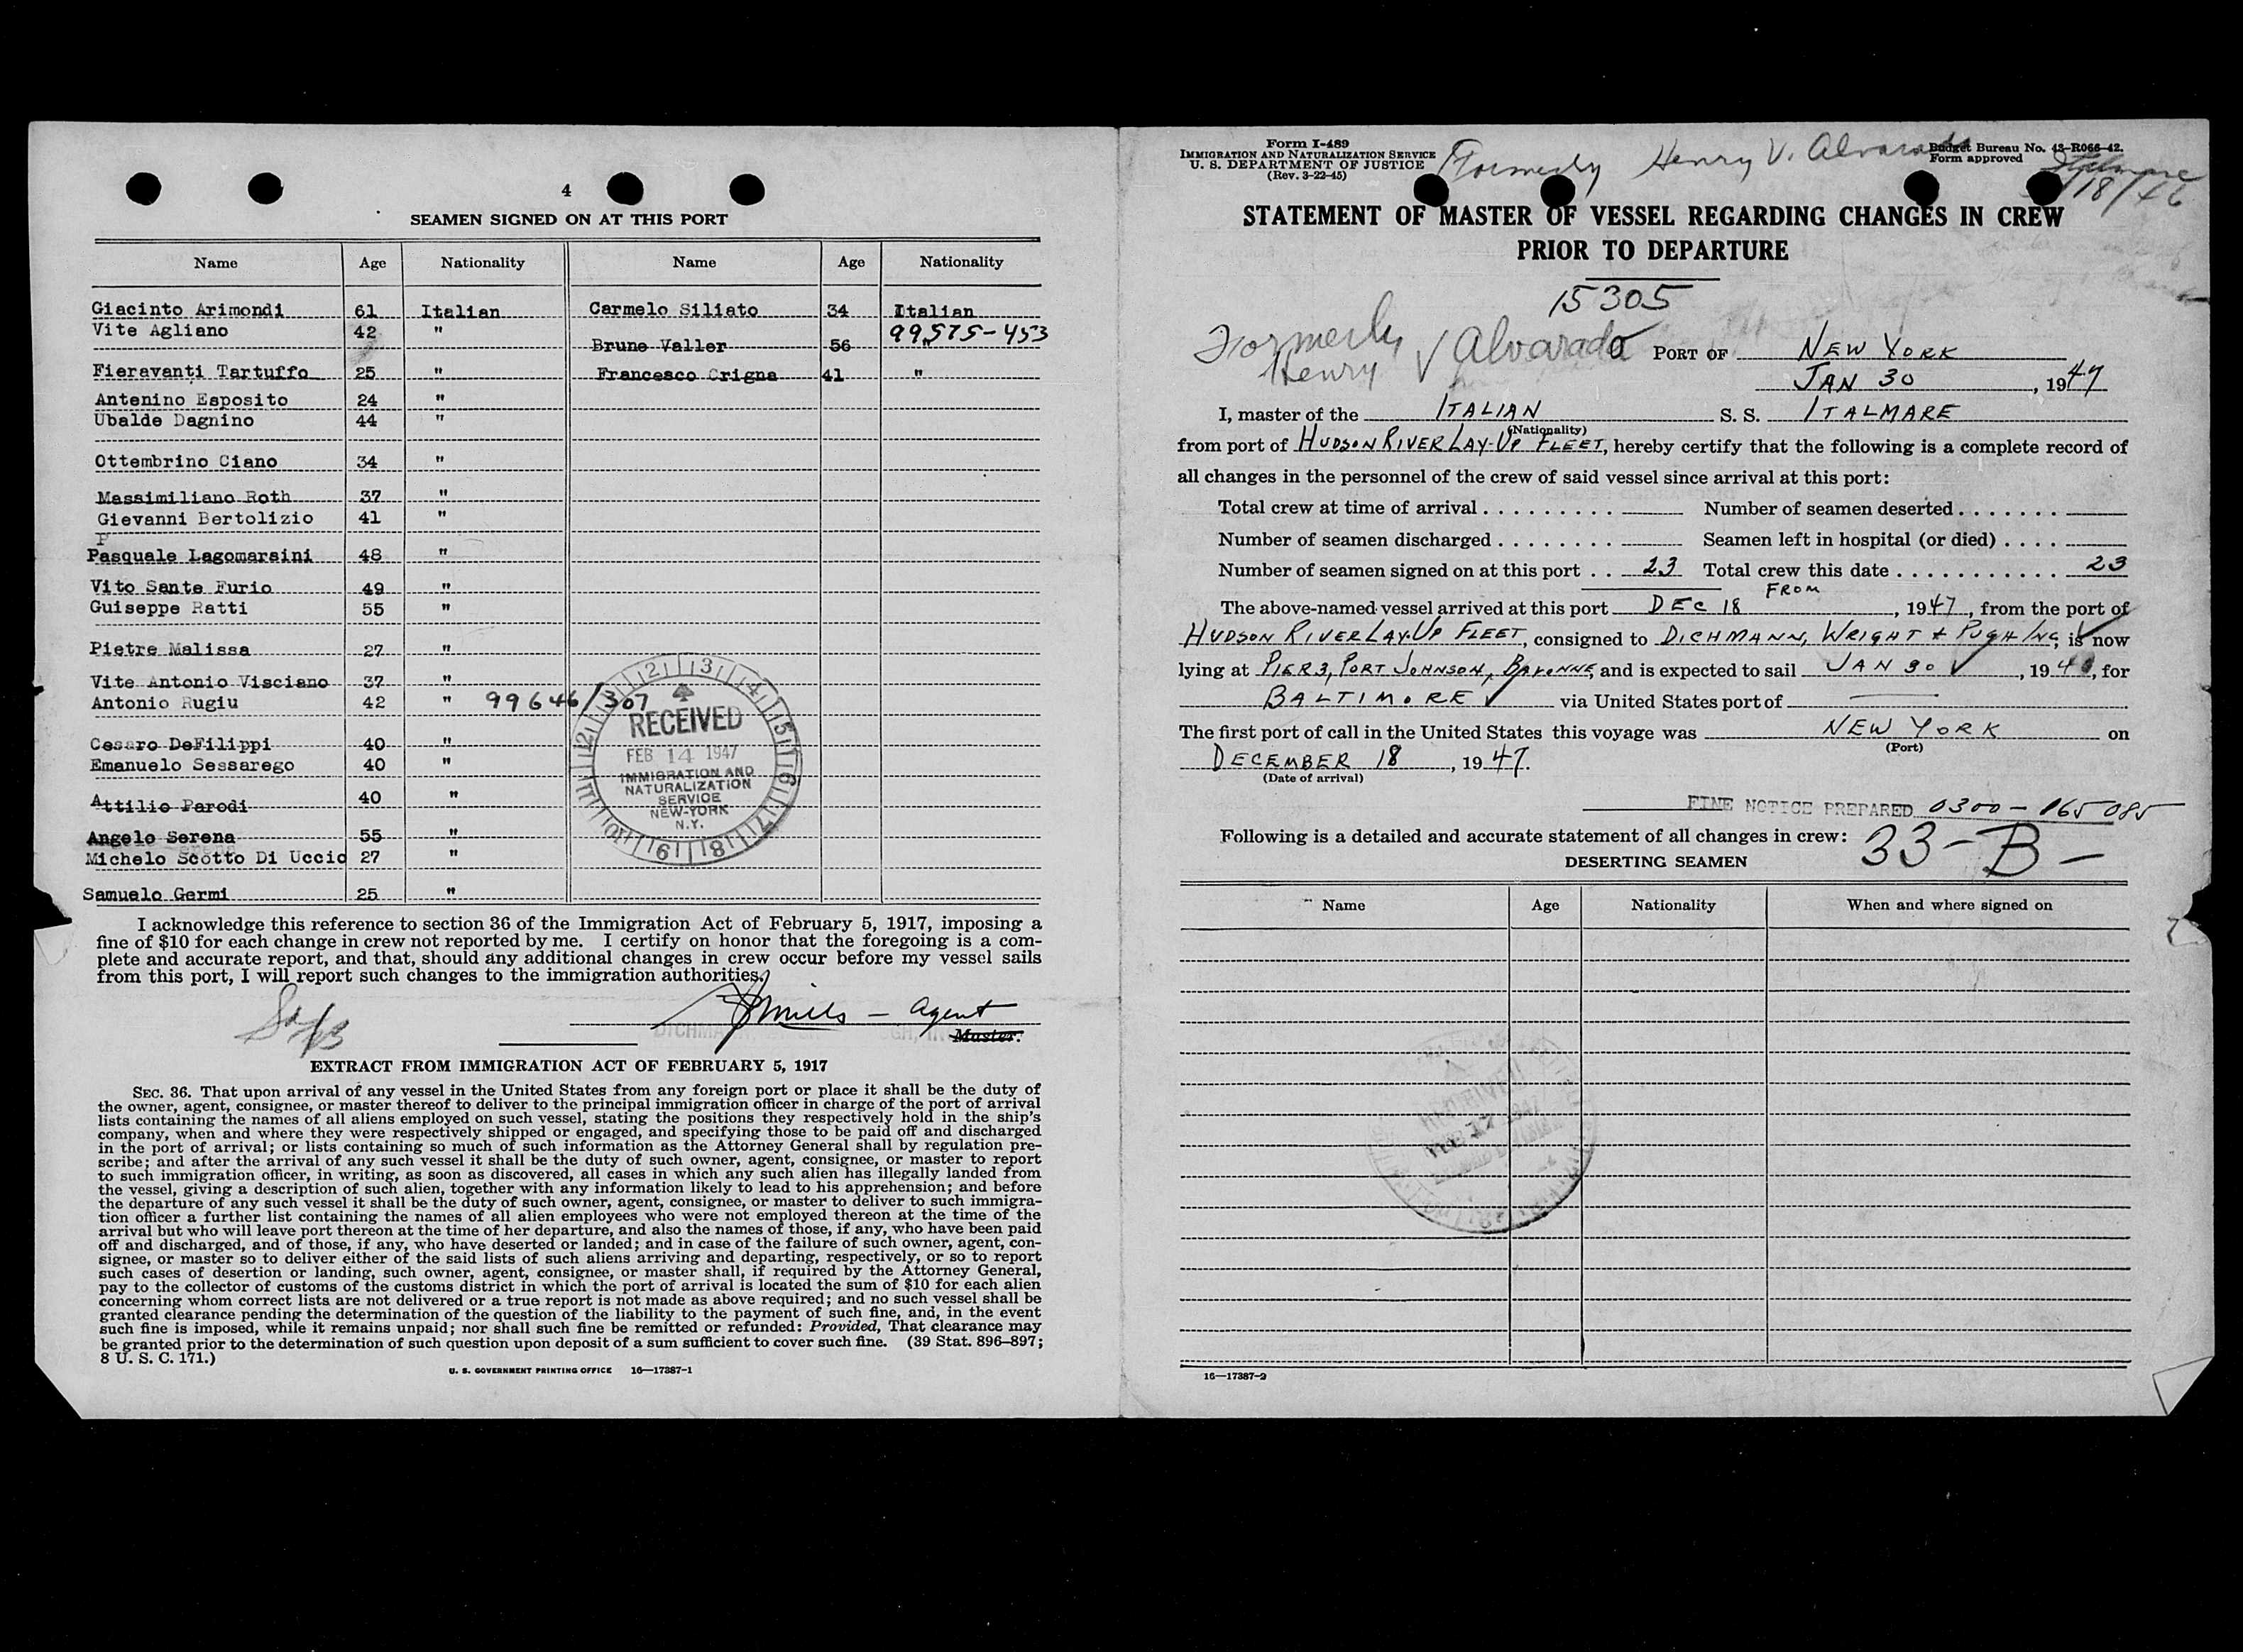 4
SEAMEN SIGNED ON AT THIS PORT
Name Age Nationality Name Age Nationality
Giacinto Arimondi 61 Italian Carmelo Siliato 34 Italian
Vite Agliano 42 " 99,575-453
Brune Valler 56
Fieravanti Tartuffo 25 " Francesco Crigna 41 "
Antenino Esposito 24 "
Ubalde Dagnino 44 "
Ottembrino Ciano 34 "
Massimiliano Roth 37 "
Gievanni Bertolizio 41 "
P
Pasquale Lagomarsini 48 "
Vito Sante Furio 49 "
Guiseppe Ratti 55 "
Pietre Malissa 27 "
Vite Antonio Visciano 37 "
Antonio Rugiu 42 " 99646/307
Cesaro DeFilippi 40 "
Emanuelo Sessarego 40 "
Attilio Parodi 40 "
Angelo Serena 55 "
Michelo Scotto Di Uccio 27 "
Samuelo Germi 25 "
RECEIVED
FEB 14 1947
IMMIGRATION AND
NATURALIZATION
SERVICE
NEW-YORK
N.Y.
I acknowledge this reference to section 36 of the Immigration Act of February 5, 1917, imposing a
fine of $10 for each change in crew not reported by me. I certify on honor that the foregoing is a com-
plete and accurate report, and that, should any additional changes in crew occur before my vessel sails
from this port, I will report such changes to the immigration authorities.
— Agent
Master.
EXTRACT FROM IMMIGRATION ACT OF FEBRUARY 5, 1917
SEC. 36. That upon arrival of any vessel in the United States from any foreign port or place it shall be the duty of
the owner, agent, consignee, or master thereof to deliver to the principal immigration officer in charge of the port of arrival
lists containing the names of all aliens employed on such vessel, stating the positions they respectively hold in the ship's
company, when and where they were respectively shipped or engaged, and specifying those to be paid off and discharged
in the port of arrival; or lists containing so much of such information as the Attorney General shall by regulation pre-
scribe; and after the arrival of any such vessel it shall be the duty of such owner, agent, consignee, or master to report
to such immigration officer, in writing, as soon as discovered, all cases in which any such alien has illegally landed from
the vessel, giving a description of such alien, together with any information likely to lead to his apprehension; and before
the departure of any such vessel it shall be the duty of such owner, agent, consignee, or master to deliver to such immigra-
tion officer a further list containing the names of all alien employees who were not employed thereon at the time of the
arrival but who will leave port thereon at the time of her departure, and also the names of those, if any, who have been paid
off and discharged, and of those, if any, who have deserted or landed; and in case of the failure of such owner, agent, con-
signee, or master so to deliver either of the said lists of such aliens arriving and departing, respectively, or so to report
such cases of desertion or landing, such owner, agent, consignee, or master shall, if required by the Attorney General,
pay to the collector of customs of the customs district in which the port of arrival is located the sum of $10 for each alien
concerning whom correct lists are not delivered or a true report is not made as above required; and no such vessel shall be
granted clearance pending the determination of the question of the liability to the payment of such fine, and, in the event
such fine is imposed, while it remains unpaid; nor shall such fine be remitted or refunded: Provided, That clearance may
be granted prior to the determination of such question upon deposit of a sum sufficient to cover such fine. (39 Stat. 896–897;
8 U. S. C. 171.)
U. S. GOVERNMENT PRINTING OFFICE 16—17387-1
Form I-489
IMMIGRATION AND NATURALIZATION SERVICE
U. S. DEPARTMENT OF JUSTICE
(Rev. 3-22-45)
Formerly Henry V. Alvarado
Budget Bureau No. 43-R066-42.
Form approved
18/46
STATEMENT OF MASTER OF VESSEL REGARDING CHANGES IN CREW
PRIOR TO DEPARTURE
15305
Formerly
Henry V Alvarado
PORT OF NEW YORK
JAN 30, 1947
I, master of the ITALIAN S. S. ITALMARE
(Nationality)
from port of HUDSON RIVER LAY-UP FLEET, hereby certify that the following is a complete record of
all changes in the personnel of the crew of said vessel since arrival at this port:
Total crew at time of arrival . . . . . . . . . Number of seamen deserted . . . . . . .
Number of seamen discharged . . . . . . . . Seamen left in hospital (or died) . . . .
Number of seamen signed on at this port . . 23 Total crew this date . . . . . . . . . . . . 23
FROM
The above-named vessel arrived at this port DEC 18, 1947, from the port of
HUDSON RIVER LAY-UP FLEET, consigned to DICHMANN, WRIGHT + PUGH INC, is now
lying at PIER 3, PORT JOHNSON, BAYONNE, and is expected to sail JAN 30, 194, for
BALTIMORE via United States port of —
The first port of call in the United States this voyage was NEW YORK on
(Port)
DECEMBER 18, 1947.
(Date of arrival)
FINE NOTICE PREPARED 0300-165085
Following is a detailed and accurate statement of all changes in crew:
33-B-
DESERTING SEAMEN
Name Age Nationality When and where signed on
16—17387-2